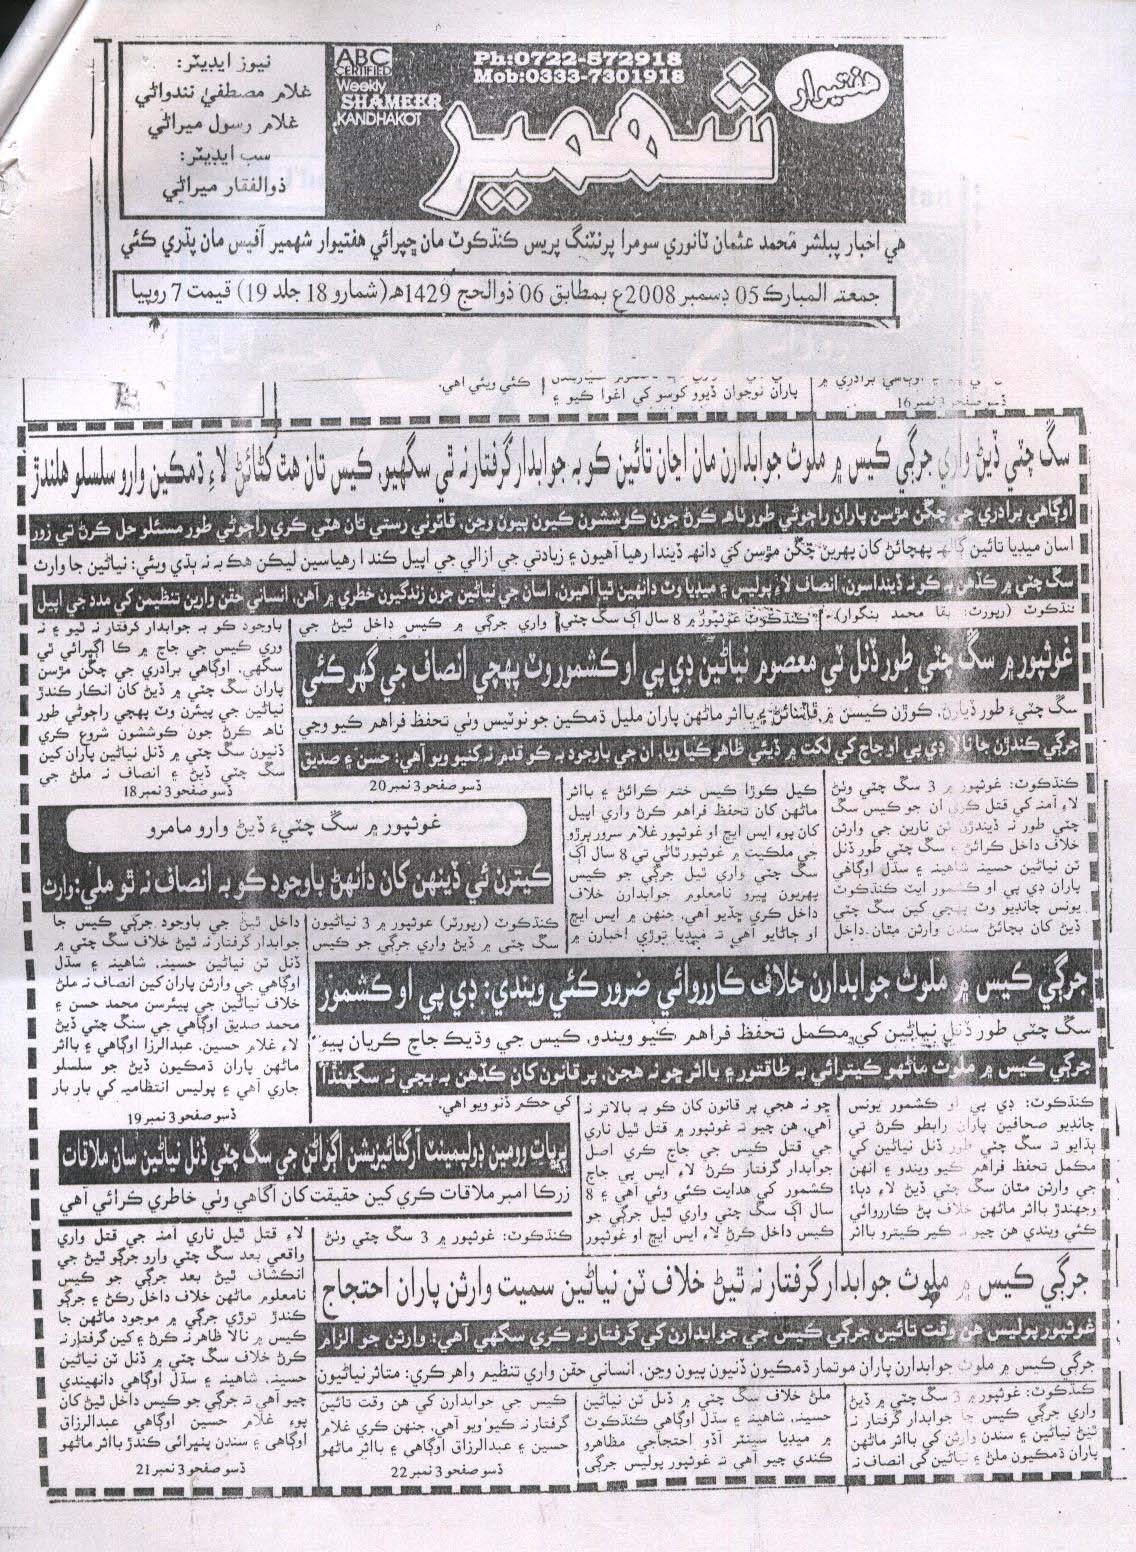 نيوز ايڊيٽر:
غلام مصطفيٰ نندواڻي
غلام رسول ميراڻي
سب ايڊيٽر:
ذوالفقار ميراڻي
ABC
CERTIFIED
Weekly
SHAMEER
KANDHAKOT
Ph:0722-572918
Mob:0333-7301918
هفتيوار
شهمير
هي اخبار پبلشر محمد عثمان ٽانوري سومرا پرنٽنگ پريس ڪنڌڪوٽ مان ڇپرائي هفتيوار شهمير آفيس مان پڌري ڪئي
جمعتہ المبارڪ 05 ڊسمبر 2008ع بمطابق 06 ذوالحج 1429ھ (شمارو 18 جلد 19) قيمت 7 روپيا
پاران نوجوان ڏيوو کوسو کي اغوا ڪيو ۽
ڪئي ويئي آهي.
ڏسو صفحو 3 نمبر 16
سڱ چٽي ڏيڻ واري جرڳي ڪيس ۾ ملوث جوابدارن مان اڃان تائين ڪو به جوابدار گرفتار نه ٿي سگهيو، ڪيس تان هٿ کڻائڻ لاءِ ڌمڪين وارو سلسلو هلندڙ
اوڳاهي برادري جي چڱن مڙسن پاران راڄوڻي طور ٺاهه ڪرڻ جون ڪوششون ڪيون پيون وڃن، قانوني رستي تان هٽي ڪري راڄوڻي طور مسئلو حل ڪرڻ تي زور
اسان ميڊيا تائين ڳالهه پهچائڻ کان پهرين چڱن مڙسن کي دانهه ڏيندا رهيا آهيون ۽ زيادتي جي ازالي جي اپيل ڪندا رهياسين ليڪن هڪ به نه ٻڌي ويئي: نياڻين جا وارث
سڱ چٽي ۾ ڪڏهن به ڪو نه ڏينداسون، انصاف لاءِ پوليس ۽ ميڊيا وٽ دانهين ٿيا آهيون، اسان جي نياڻين جون زندگيون خطري ۾ آهن، انساني حقن وارين تنظيمن کي مدد جي اپيل
ڪنڌڪوٽ (رپورٽ: بقا محمد بنگوار)
ڪنڌڪوٽ غوثپور ۾ 8 سال اڳ سڱ چٽي واري جرڳي ۾ ڪيس داخل ٿيڻ جي
باوجود ڪو به جوابدار گرفتار نه ٿيو ۽ نه
وري ڪيس جي جاچ ۾ ڪا اڳڀرائي ٿي
سگهي. اوڳاهي برادري جي چڱن مڙسن
پاران سڱ چٽي ۾ ڏيڻ کان انڪار ڪندڙ
نياڻين جي پيئرن وٽ پهچي راڄوڻي طور
ٺاهه ڪرڻ جون ڪوششون شروع ڪري
ڏنيون سڱ چٽي ۾ ڏنل نياڻين پاران کين
سڱ چٽي ڏيڻ ۽ انصاف نه ملڻ جي
ڏسو صفحو 3 نمبر 18
غوثپور ۾ سڱ چٽي طور ڏنل ٽي معصوم نياڻين ڊي پي او ڪشمور وٽ پهچي انصاف جي گهر ڪئي
سڱ چٽيءَ طور ڏيارڻ، ڪوڙن ڪيسن ۾ ڦاسائڻ ۽ بااثر ماڻهن پاران مليل ڌمڪين جو نوٽيس وٺي تحفظ فراهم ڪيو وڃي
جرڳي ڪندڙن جا نالا ڊي پي او جاچ کي لکت ۾ ڏيئي ظاهر ڪيا ويا، ان جي باوجود به ڪو قدم نه کنيو ويو آهي: حسن ۽ صديق
ڪنڌڪوٽ: غوثپور ۾ 3 سڱ چٽي وٺڻ
لاءِ آمنه کي قتل ڪري ان جو ڪيس سڱ
چٽي طور نه ڏيندڙن ٽن نارين جي وارثن
خلاف داخل ڪرائڻ ۽ سڱ چٽي طور ڏنل
ٽن نياڻين حسينه، شاهينه ۽ سڏل اوڳاهي
پاران ڊي پي او ڪشمور ايٽ ڪنڌڪوٽ
يونس چانڊيو وٽ پهچي کين سڱ چٽي
ڏيڻ کان بچائڻ سندن وارثن مٿان داخل
ڪيل ڪوڙا ڪيس ختم ڪرائڻ ۽ بااثر
ماڻهن کان تحفظ فراهم ڪرڻ واري اپيل
کان پوءِ ايس ايڇ او غوثپور غلام سرور ٻرڙو
جي ملڪيت ۾ غوثپور ٿاڻي تي 8 سال اڳ
سڱ چٽي واري ٿيل جرڳي جو ڪيس
پهريون ڀيرو نامعلوم جوابدارن خلاف
داخل ڪري ڇڏيو آهي. جنهن ۾ ايس ايڇ
او ڄاڻايو آهي ته ميڊيا توڙي اخبارن ۾
ڏسو صفحو 3 نمبر 20
غوثپور ۾ سڱ چٽيءَ ڏيڻ وارو مامرو
ڪيترن ئي ڏينهن کان دانهڻ باوجود ڪو به انصاف نه ٿو ملي: وارث
ڪنڌڪوٽ (رپورٽر) غوثپور ۾ 3 نياڻيون
سڱ چٽي ۾ ڏيڻ واري جرڳي جو ڪيس
داخل ٿيڻ جي باوجود جرڳي ڪيس جا
جوابدار گرفتار نه ٿيڻ خلاف سڱ چٽي ۾
ڏنل ٽن نياڻين حسينه، شاهينه ۽ سڏل
اوڳاهي جي وارثن پاران کين انصاف نه ملڻ
خلاف نياڻين جي پيئرسن محمد حسن ۽
محمد صديق اوڳاهي جي سنگ چٽي ڏيڻ
لاءِ غلام حسين، عبدالرزا اوڳاهي ۽ بااثر
ماڻهن پاران ڌمڪيون ڏيڻ جو سلسلو
جاري آهي ۽ پوليس انتظاميه کي بار بار
ڏسو صفحو 3 نمبر 19
جرڳي ڪيس ۾ ملوث جوابدارن خلاف ڪارروائي ضرور ڪئي ويندي: ڊي پي او ڪشمور
سڱ چٽي طور ڏنل نياڻين کي مڪمل تحفظ فراهم ڪيو ويندو، ڪيس جي وڌيڪ جاچ ڪريان پيو
جرڳي ڪيس ۾ ملوث ماڻهو ڪيترائي به طاقتور ۽ بااثر ڇو نه هجن، پر قانون کان ڪڏهن به بچي نه سگهندا
ڪنڌڪوٽ: ڊي پي او ڪشمور يونس
چانڊيو صحافين پاران رابطو ڪرڻ تي
ٻڌايو ته سڱ چٽي طور ڏنل نياڻين کي
مڪمل تحفظ فراهم ڪيو ويندو ۽ انهن
جي وارثن مٿان سڱ چٽي ڏيڻ لاءِ دٻاءُ
وجهندڙ بااثر ماڻهن خلاف پڻ ڪارروائي
ڪئي ويندي هن چيو ته ڪير ڪيترو بااثر
ڇو نه هجي پر قانون کان ڪو به بالاتر نه
آهي. هن چيو ته غوثپور ۾ قتل ٿيل ناري
جي قتل ڪيس جي جاچ ڪري اصل
جوابدار گرفتار ڪرڻ لاءِ ايس پي جاچ
ڪشمور کي هدايت ڪئي وئي آهي ۽ 8
سال اڳ سڱ چٽي واري ٿيل جرڳي جو
ڪيس داخل ڪرڻ لاءِ ايس ايڇ او غوثپور
کي حڪم ڏنو ويو آهي.
پرڀات وومين ڊولپمينٽ آرگنائيزيشن اڳواڻن جي سڱ چٽي ڏنل نياڻين سان ملاقات
زرڪا امبر ملاقات ڪري کين حقيقت کان آگاهي وٺي خاطري ڪرائي آهي
ڪنڌڪوٽ: غوثپور ۾ 3 سڱ چٽي وٺڻ
لاءِ قتل ٿيل ناري آمنه جي قتل واري
واقعي بعد سڱ چٽي وارو جرڳو ٿيڻ جي
انڪشاف ٿيڻ بعد جرڳي جو ڪيس
نامعلوم ماڻهن خلاف داخل رکڻ ۽ جرڳو
ڪندڙ توڙي جرڳي ۾ موجود ماڻهن جا
ڪيس ۾ نالا ظاهر نه ڪرڻ ۽ کين گرفتار نه
ڪرڻ خلاف سڱ چٽي ۾ ڏنل ٽن نياڻين
حسينه، شاهينه ۽ سڏل اوڳاهي دانهيندي
چيو آهي ته جرڳي جو ڪيس داخل ٿيڻ کان
پوءِ غلام حسين اوڳاهي عبدالرزاق
اوڳاهي ۽ سندن پٺڀرائي ڪندڙ بااثر ماڻهو
ڏسو صفحو 3 نمبر 21
جرڳي ڪيس ۾ ملوث جوابدار گرفتار نه ٿيڻ خلاف ٽن نياڻين سميت وارثن پاران احتجاج
غوثپور پوليس هن وقت تائين جرڳي ڪيس جي جوابدارن کي گرفتار نه ڪري سگهي آهي: وارثن جو الزام
جرڳي ڪيس ۾ ملوث جوابدارن پاران موتمار ڌمڪيون ڏنيون پيون وڃن، انساني حقن واري تنظيم واهر ڪري: متاثر نياڻيون
ڪنڌڪوٽ: غوثپور ۾ 3 سڱ چٽي ۾ ڏيڻ
واري جرڳي ڪيس جا جوابدار گرفتار نه
ٿيڻ نياڻين ۽ سندن وارثن کي بااثر ماڻهن
پاران ڌمڪيون ملڻ ۽ نياڻين کي انصاف نه
ملڻ خلاف سڱ چٽي ۾ ڏنل ٽن نياڻين
حسينه، شاهينه ۽ سڏل اوڳاهي ڪنڌڪوٽ
۾ ميڊيا سينٽر آڏو احتجاجي مظاهرو
ڪندي چيو آهي ته غوثپور پوليس جرڳي
ڪيس جي جوابدارن کي هن وقت تائين
گرفتار نه ڪيو ويو آهي. جنهن ڪري غلام
حسين ۽ عبدالرزاق اوڳاهي ۽ بااثر ماڻهو
ڏسو صفحو 3 نمبر 22